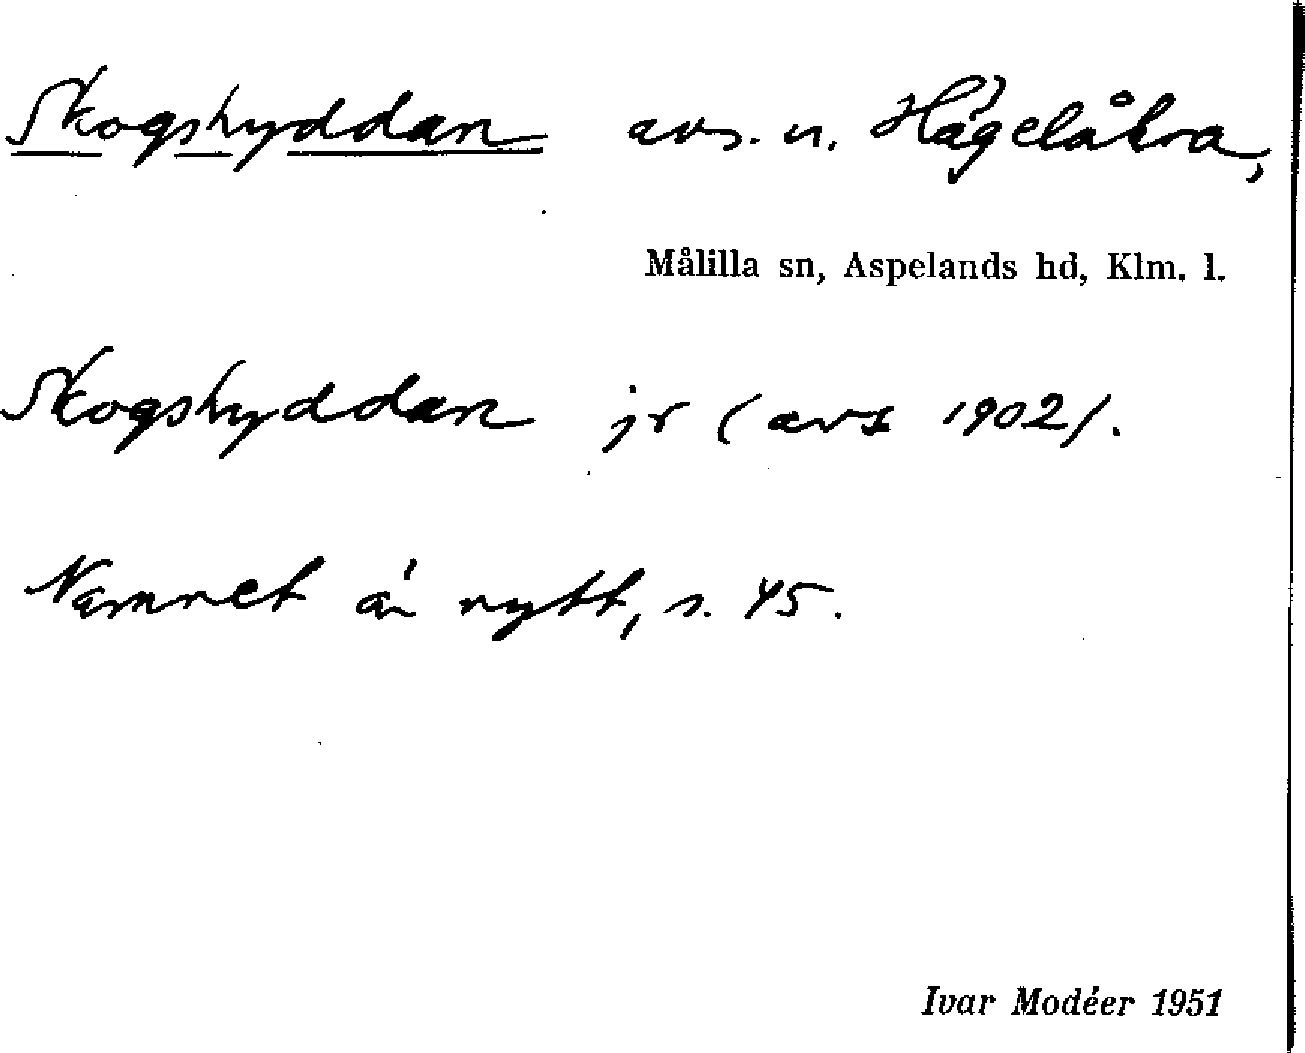 Skogshyddan avs. u. Hägelåkra,
Målilla sn, Aspelands hd, Klm. l.
Skogshyddan jr (avs 1902).
Namnet är nytt, s. 45.
Ivar Modéer 1951